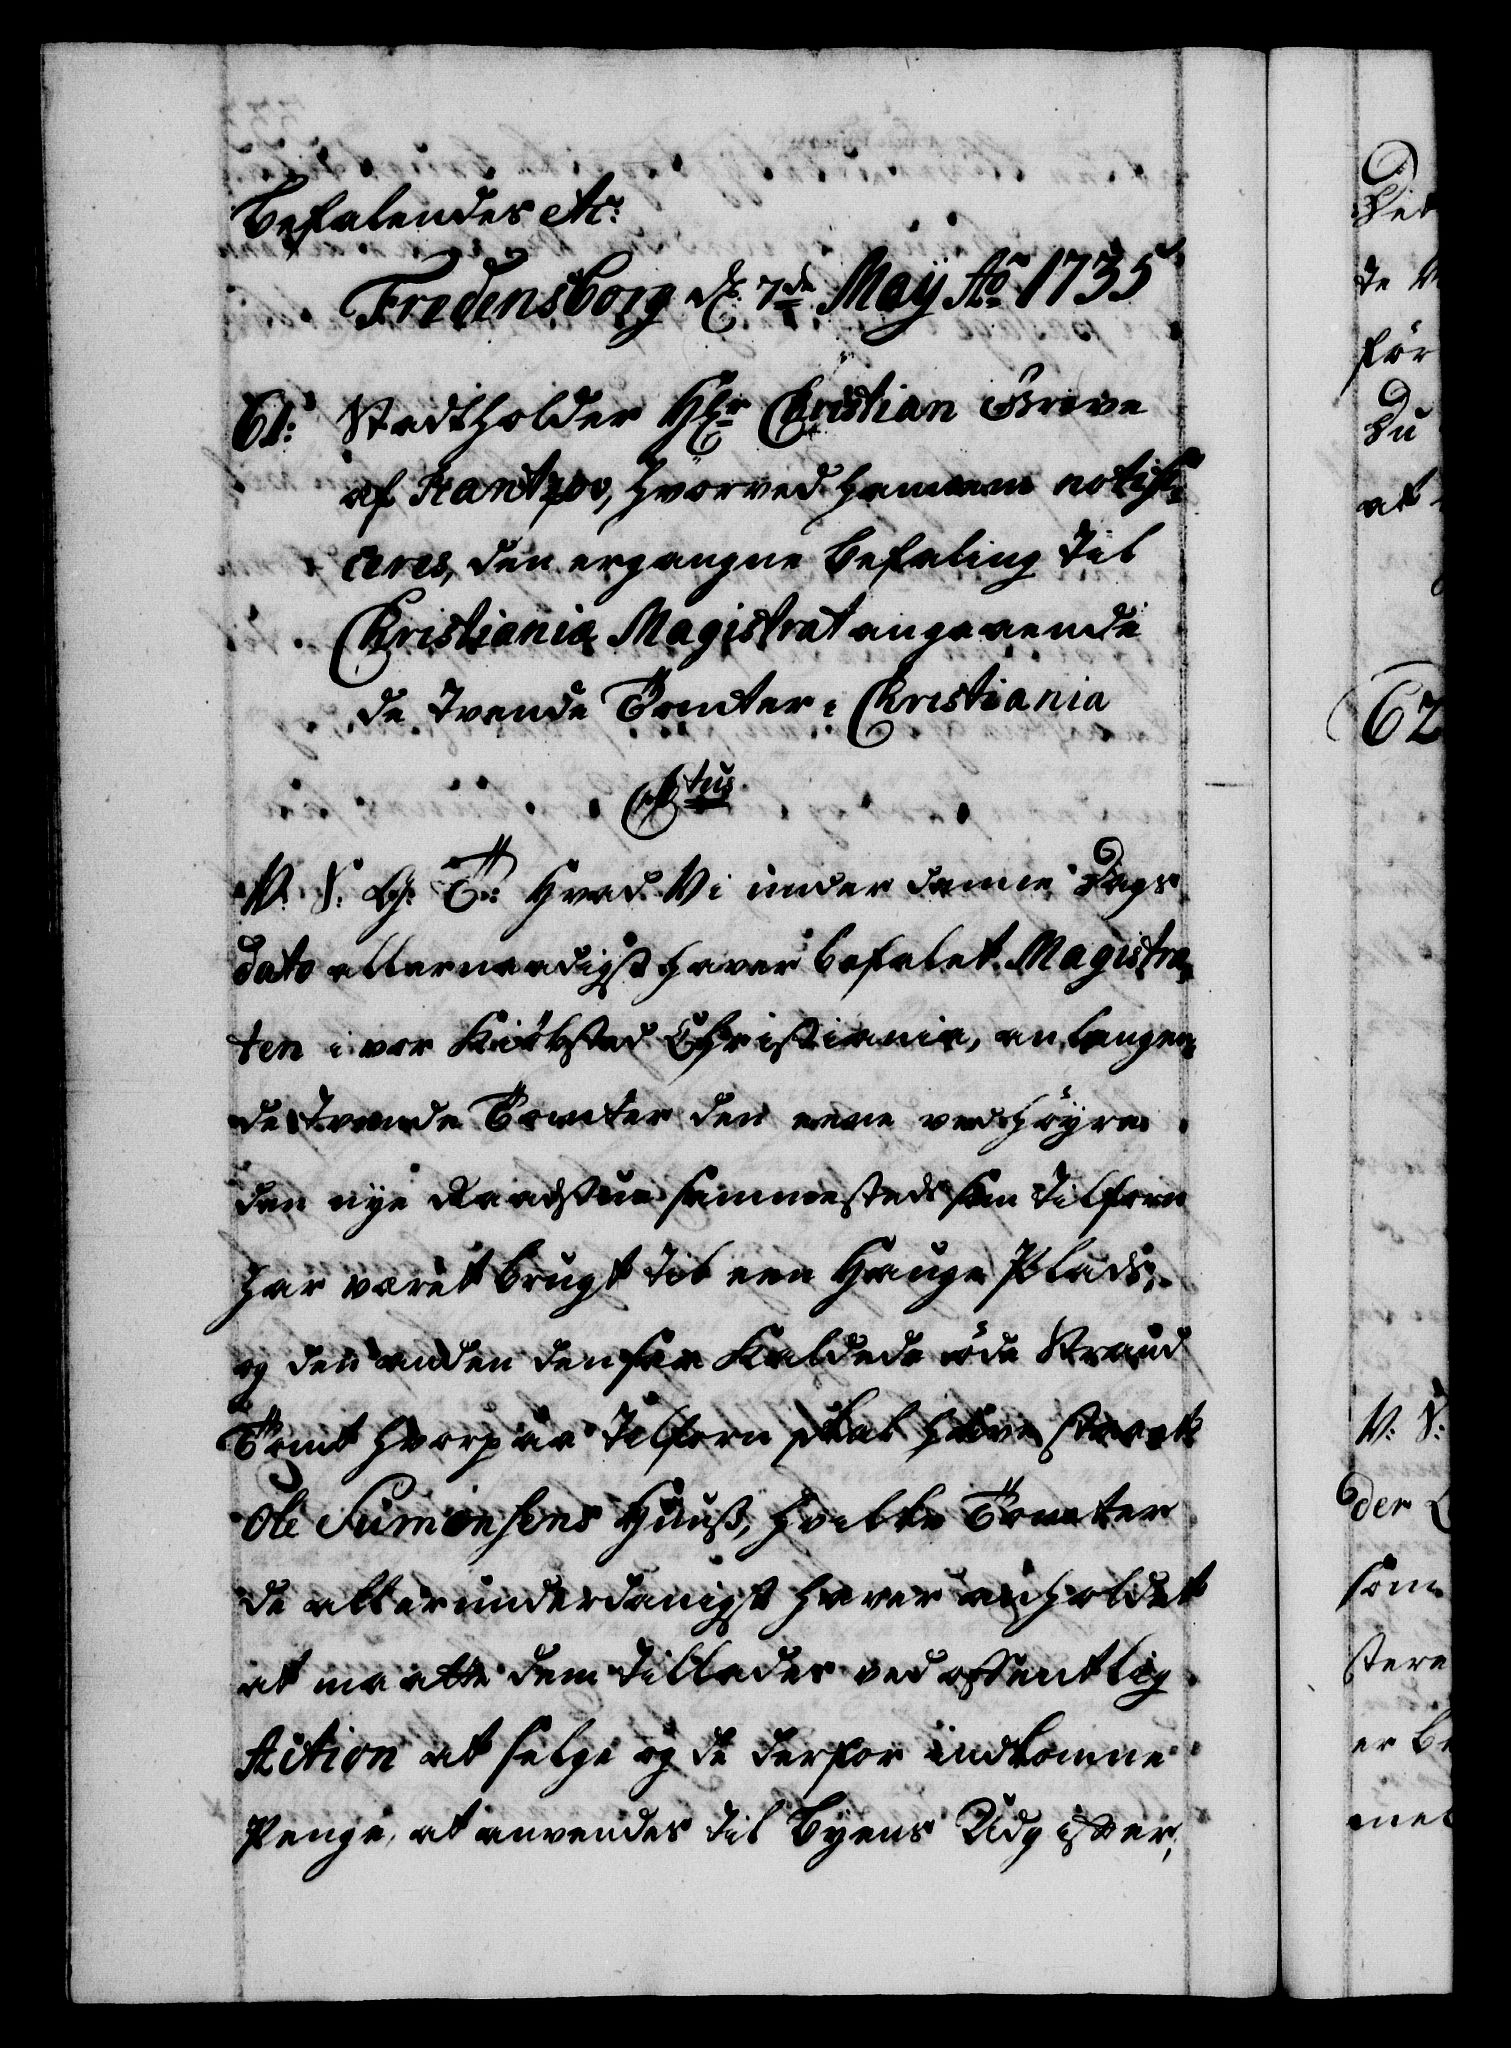 Befalendes etc:
Fredensborg d: 7de Maÿ Ao 1735
61: Stadtholder Hr Christian Greve
af Rantzov, hvorved hannem notifi-
ceres, den ergangne Befaling til
Christiania Magistrat angaaende
de tvende Tomter i Christiania
Ctus
V. S. G. T: Hvad Vi under denne Dags
dato allernaadigst haver befalet Magistra-
ten i vor Kiöbsted Christiania, anlangen-
de tvende Tomter den eene ved Höyre
den nye Raadstue sammesteds som tilforn
har været brugt til een Hauge Plads,
og den anden den saa kaldede öde Strand
Tomt hvorpaa tilforn skal have staaet
Ole Simensens Huuß, hvilke Tomter
de allerunderdanigst haver anholdet
at maatte dem tillades ved offentlig
Action at selge og de derfor indkomne
Penge, at anvendes til Byens Udgifter,
Det
de
för
Du
at
62
V: S:
der
som
stere
er be
med